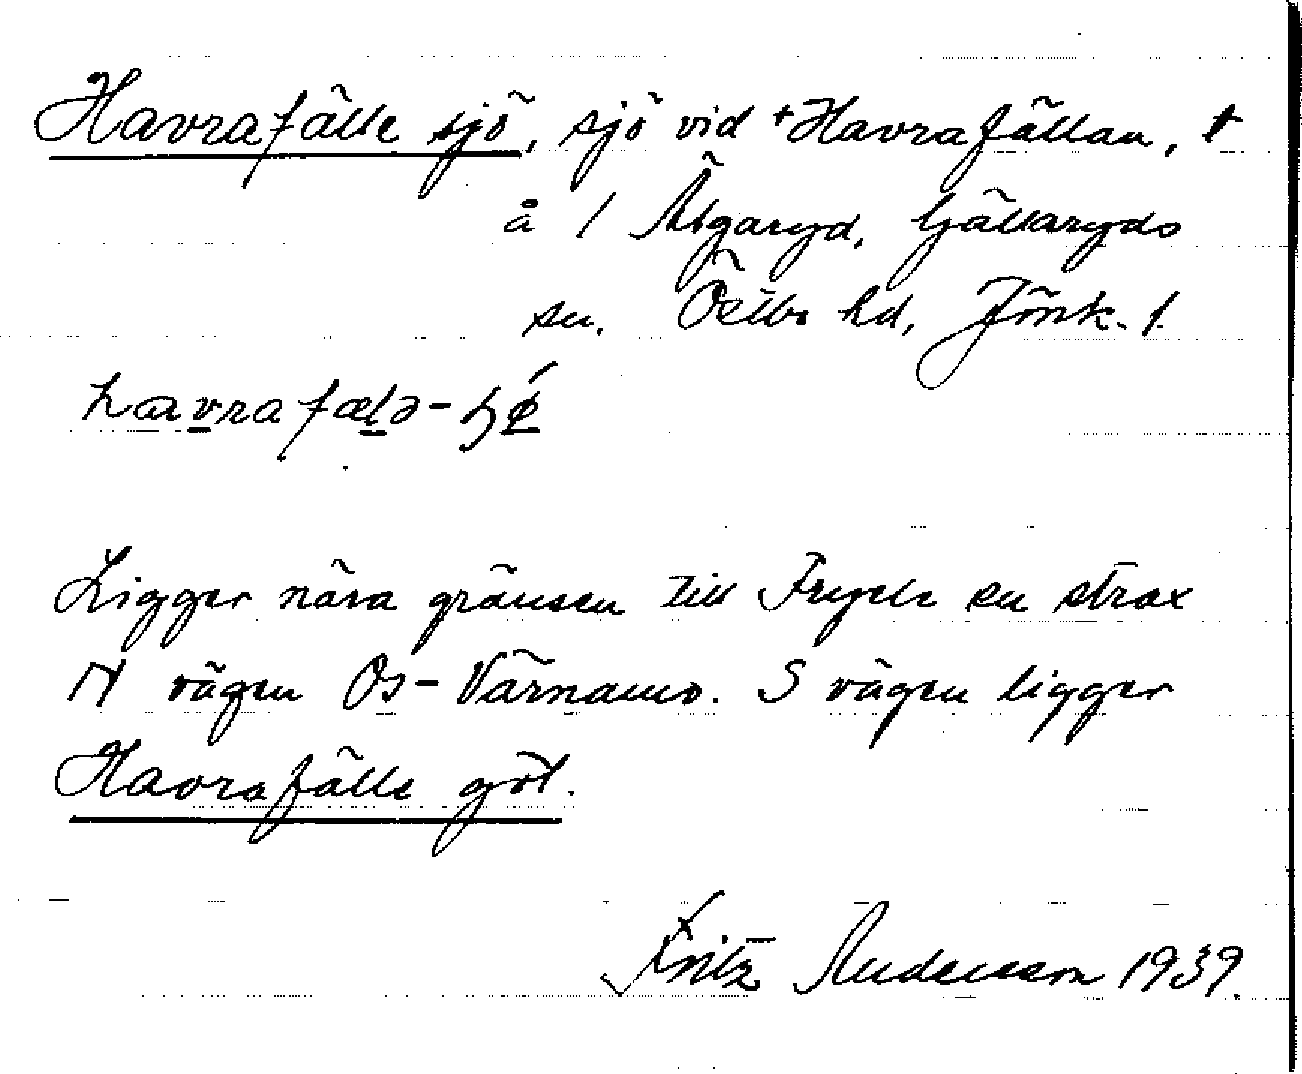 Havrafälle sjö, sjö vid +Havrafällan, t
å 1 Älgaryd, Gällaryds
sn. Östbo hd, Jönk. l.
havrafælə-ɧø
Ligger nära gränsen till Fryele sn strax
N vägen Os-Värnamo. S vägen ligger
Havrafälle göl.
Fritz Andersson 1939.